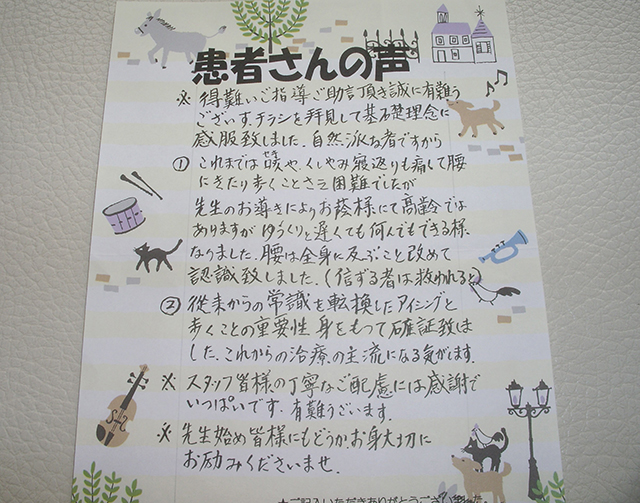 患者さんの声
※ 得難いご指導ご助言頂き誠に有難う
ございす.チラシを拝見して基礎理念に
感服致しました.自然派な者ですから
① これまでは咳せきや.くしゃみ寝返りも痛して腰
にきたり歩くことさえ困難でしたが
先生のお導きによりお蔭様にて高齢では
ありますがゆっくりと遅くても何んでもできる様
なりました.腰は全身に及ぶこと改めて
認識致しました.(信ずる者は救われる)
② 従来からの常識を転換したアイシングと
歩くことの重要性 身をもって確証致しま
した.これからの治療の主流になる気がします.
※ スタッフ皆様の丁寧なご配慮には感謝で
いっぱいです.有難うございます.
※ 先生始め皆様にもどうか.お身大切に
お励みくださいませ.
★ご記入いただきありがとうございました